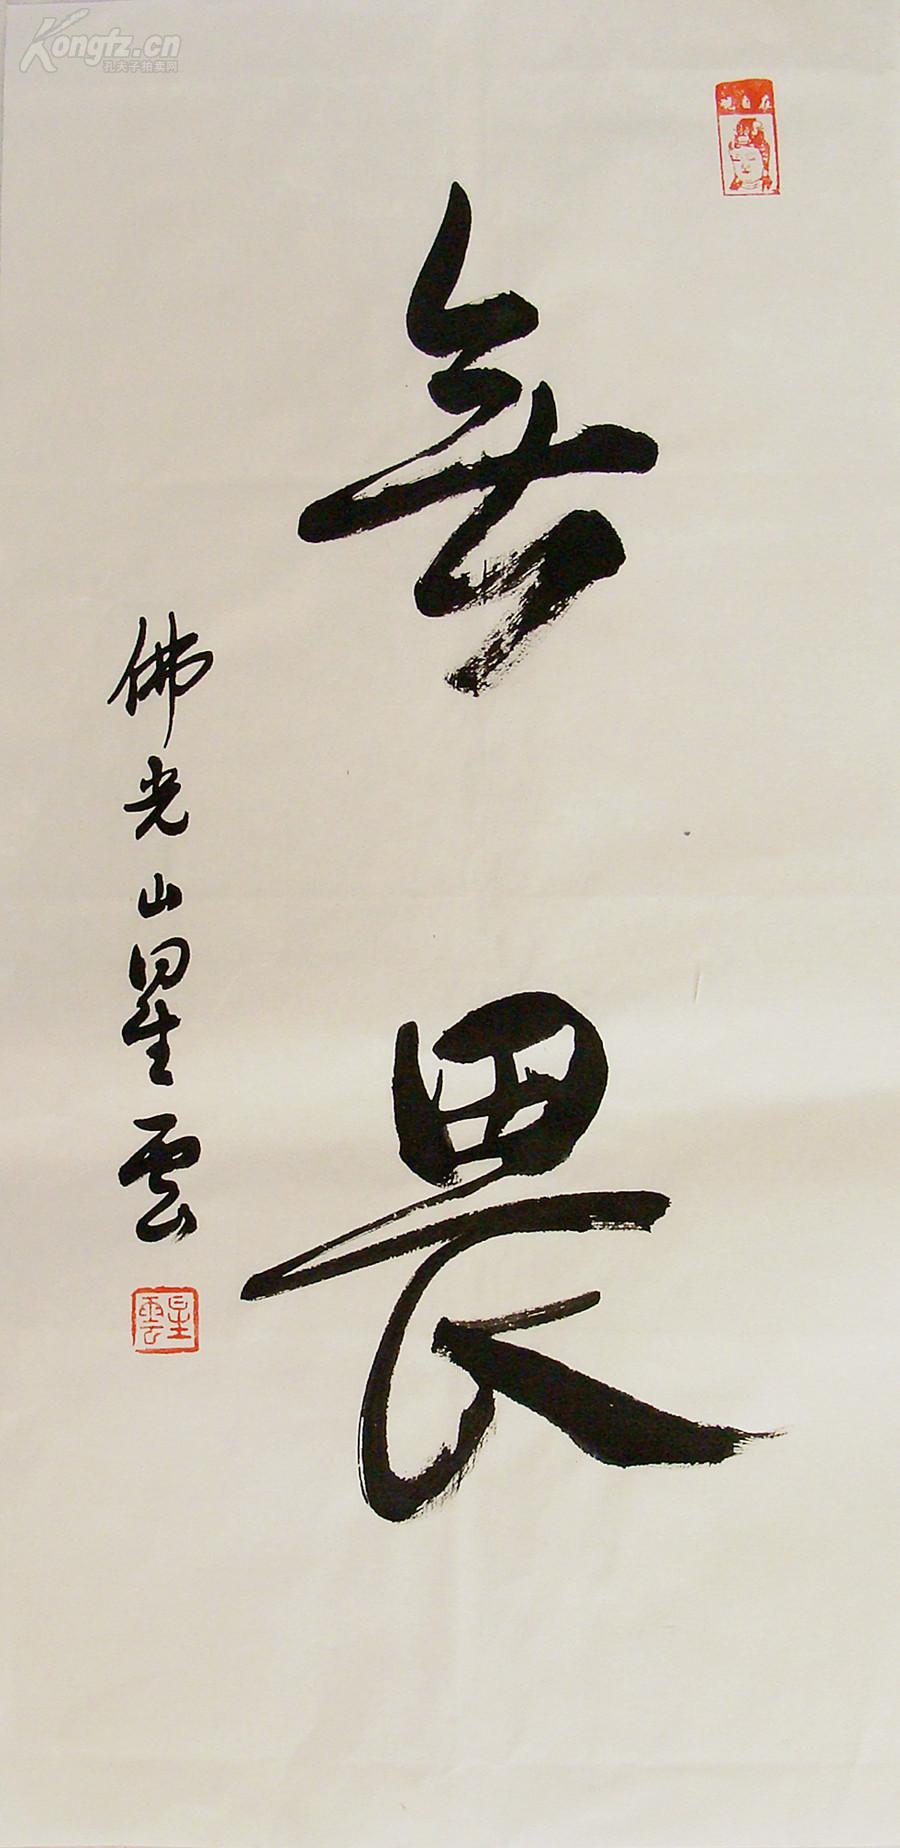 Kongfz.cn
孔夫子拍卖网
观自在
無畏
佛光山星雲
星雲